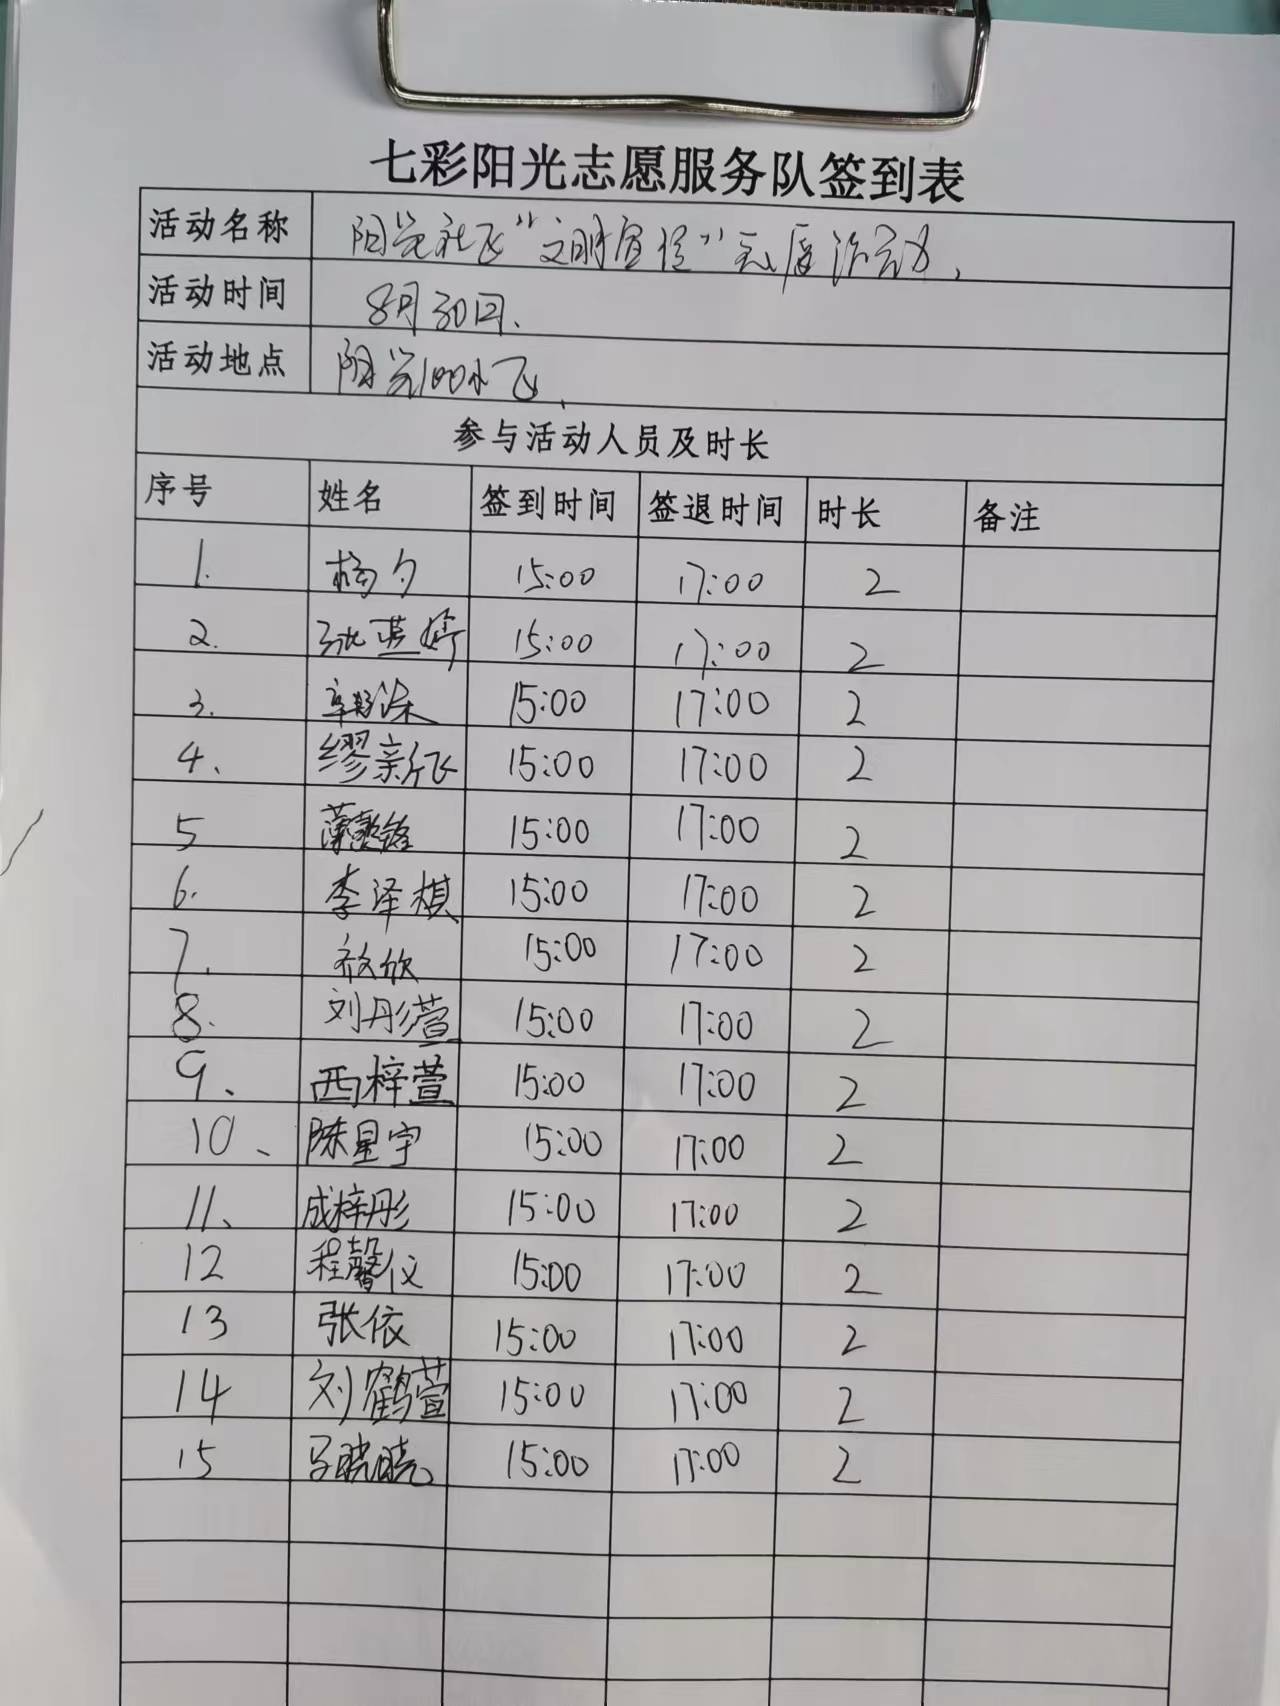 七彩阳光志愿服务队签到表
活动名称 阳光社区“文明宣传”志愿活动
活动时间 8月30日.
活动地点 阳光100小区
参与活动人员及时长
序号 姓名 签到时间 签退时间 时长 备注
1. 杨夕 15:00 17:00 2
2. 张蓝婷 15:00 17:00 2
3. 15:00 17:00 2
4、 缪新飞 15:00 17:00 2
5 15:00 17:00 2
6. 李泽棋 15:00 17:00 2
7. 15:00 17:00 2
8. 刘彤萱 15:00 17:00 2
9、 西梓萱 15:00 17:00 2
10、 陈星宇 15:00 17:00 2
11、 成梓彤 15:00 17:00 2
12 程馨仪 15:00 17:00 2
13 张依 15:00 17:00 2
14 刘鹤萱 15:00 17:00 2
15 马晓晓 15:00 17:00 2